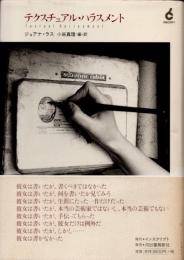 テクスチュアル・ハラスメント
Textual Harassment
ジョアナ・ラス 小谷真理 編・訳
彼女は書いたが、書くべきではなかった
彼女は書いたが、何を書いたか見てみろ
彼女は書いたが、生涯にたった一作だけだった
彼女は書いたが、本当の芸術家ではないし、本当の芸術でもない
彼女は書いたが、手伝ってもらった
彼女は書いたが、彼女だけは例外だ
彼女は書いたが、しかし……
彼女は書かなかった
発行●インスクリプト
発売●河出書房新社